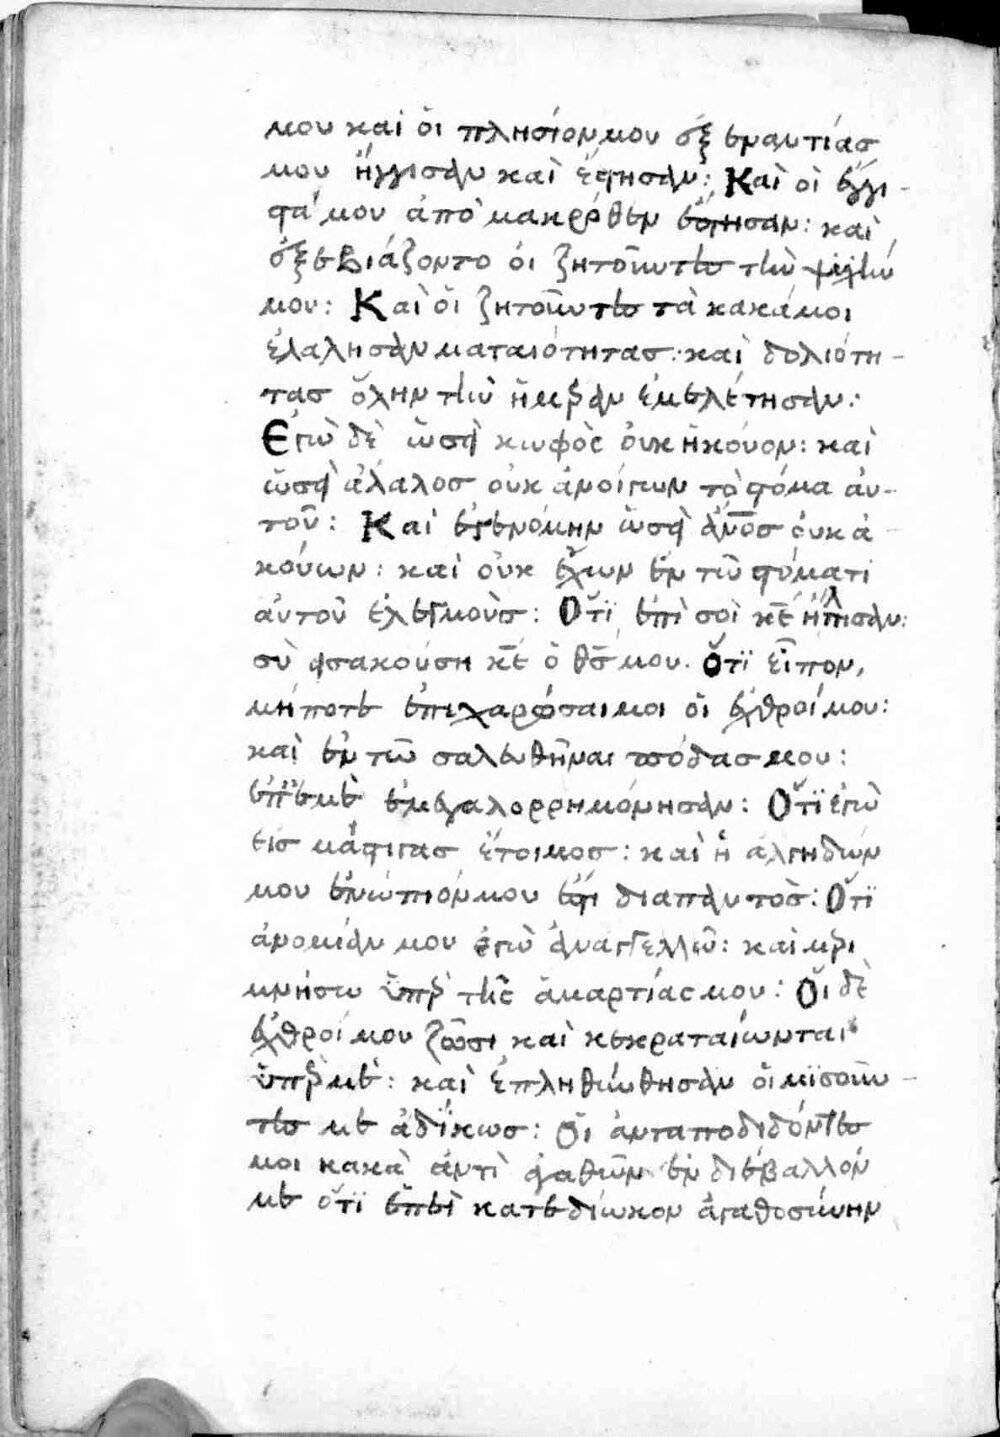 μου καὶ οἱ πλησίον μου ἐξ ἐναντίας
μου ἤγγισαν καὶ ἔστησαν: Καὶ οἱ ἔγγι-
στά μου ἀπὸ μακρόθεν ἔστησαν: καὶ
ἐξεβιάζοντο οἱ ζητοῦντες τὴν ψυχήν
μου: Καὶ οἱ ζητοῦντες τὰ κακά μοι
ἐλάλησαν ματαιότητας: καὶ δολιότη-
τας ὅλην τὴν ἡμέραν ἐμελέτησαν:
Ἐγὼ δὲ ὡσεὶ κωφὸς οὐκ ἤκουον: καὶ
ὡσεὶ ἄλαλος οὐκ ἀνοίγων τὸ στόμα αὐ-
τοῦ: Καὶ ἐγενόμην ὡσεὶ ἄνος οὐκ ἀ-
κούων: καὶ οὐκ ἔχων ἐν τῶ στόματι
αὐτοῦ ἐλεγμούς: Ὅτι ἐπὶ σοὶ κε ἤλπισαν:
σὺ εἰσακούση κε ὁ θς μου. Ὅτι εἶπον,
μήποτε ἐπιχαρῶσαι μοι οἱ ἐχθροί μου:
καὶ ἐν τῶ σαλευθῆναι πόδας μου:
ἐπ' ἐμὲ ἐμεγαλορρημόνησαν: Ὅτι ἐγὼ
εἰς μάστιγας ἕτοιμος: καὶ ἡ ἀλγηδών
μου ἐνώπιόν μου ἐστι διαπαντὸς: Ὅτι
ἀνομίαν μου ἐγὼ ἀναγγελλῶ: καὶ μερι
μνήσω ὑπὲρ τῆς ἁμαρτίας μου: Οἱ δὲ
ἐχθροί μου ζῶσι καὶ κεκραταίωνται
ὑπὲρ μὲ: καὶ ἐπληθύνθησαν οἱ μισοῦν-
τες με ἀδίκως: Οἱ ἀνταποδιδόντες
μοι κακὰ ἀντὶ ἀγαθῶν ἐνδιέβαλλόν
με ὅτι ἐπεὶ κατεδίωκον ἀγαθοσύνην